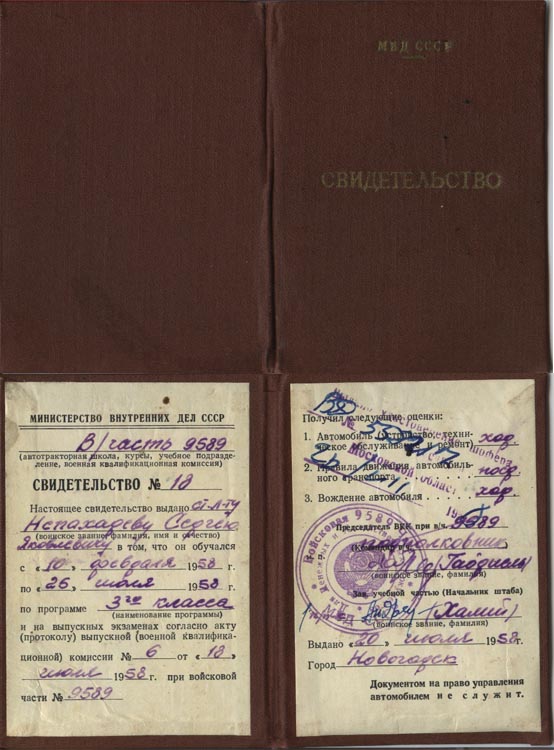 МВД СССР
СВИДЕТЕЛЬСТВО
МИНИСТЕРСТВО ВНУТРЕННИХ ДЕЛ СССР
В/часть 9589
(автотракторная школа, курсы, учебное подразде-
ление, военная квалификационная комиссии)
СВИДЕТЕЛЬСТВО № 18
Настоящее свидетельство выдано ст. л-ту
Сергею
Яковлевичу в том, что он обучался
(воинское звание, фамилия, имя и отчество)
с «10» февраля 1958 г.
по «26» июля 1958 г.
по программе 3го класса
(наименование программы)
и на выпускных экзаменах согласно акту
(протоколу) выпускной (военной квалифика-
ционной) комиссии № 6 от «18»
июля 1958 г. при войсковой
части № 9589
Получил следующие оценки:
1. Автомобиль (устройство, техни-
ческое обслуживание и ремонт) хор.
2. Правила движения автомобиль-
ного транспорта
3. Вождение автомобиля хор.
Председатель ВКК при в/ч 9589
подполковник
(воинское звание, фамилия)
Зав. учебной частью (Начальник штаба)
(воинское звание, фамилия)
Выдано «20» июля 1958 г.
Город Новогорск
Документом на право управления
автомобилем не служит.
Войсковая 9589
Московской области